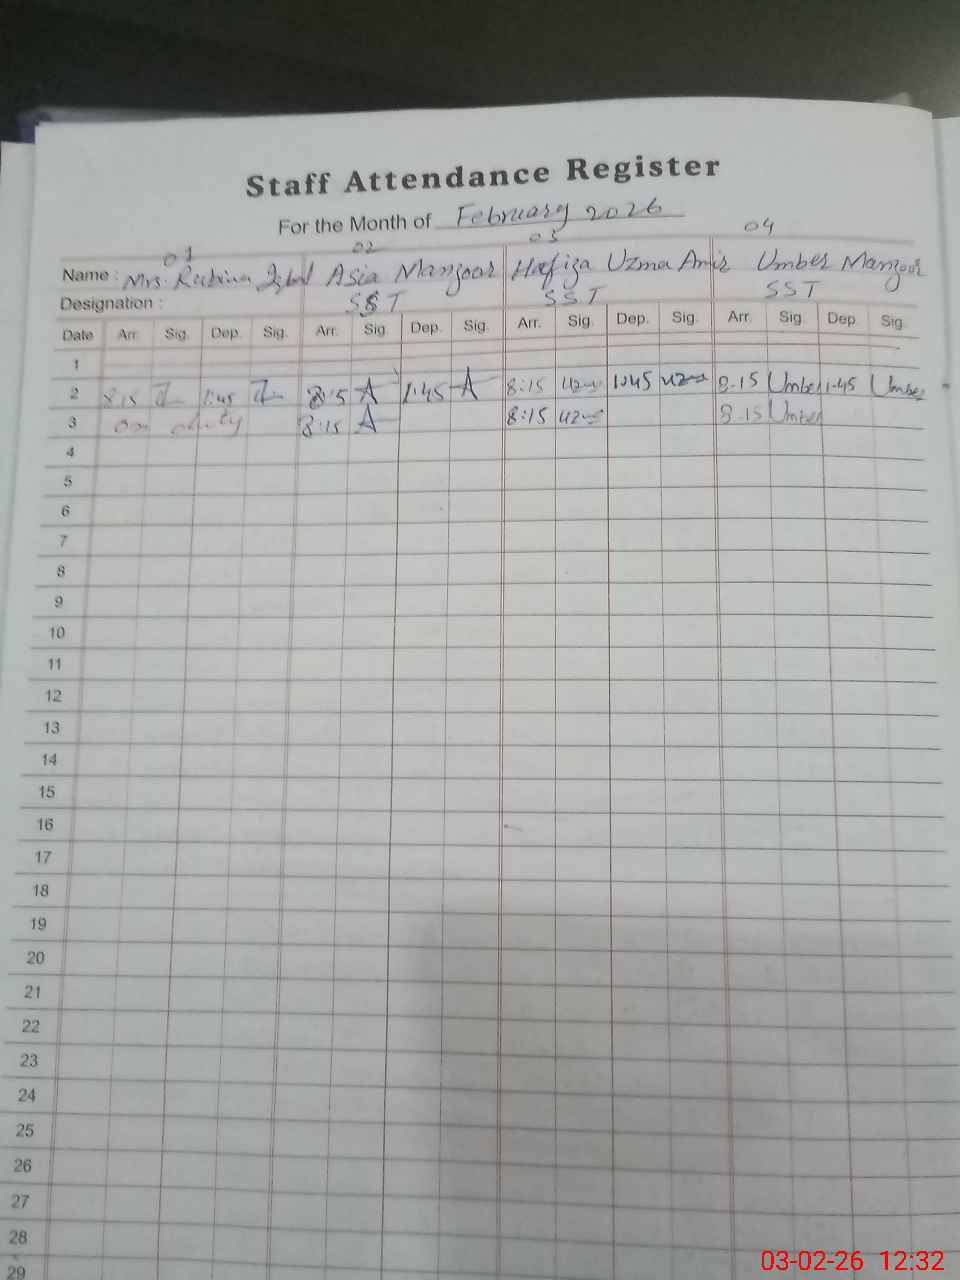 Staff Attendance Register
For the Month of February 2026
01 02 03 04
Name : Mrs. Rubina Iqbal Asia Manzoor Hafiza Uzma Amir Umber Manzoor
Designation : SST SST SST
Date Arr. Sig. Dep. Sig. Arr. Sig. Dep. Sig. Arr. Sig. Dep. Sig. Arr. Sig. Dep. Sig.
1
2 8:15 1:45 8:15 A 1:45 A 8:15 uz 1:45 uz 8.15 Umber 1.45 Umber
3 on duty 8:15 A 8:15 uz 8.15 Umber
4
5
6
7
8
9
10
11
12
13
14
15
16
17
18
19
20
21
22
23
24
25
26
27
28
29
03-02-26 12:32